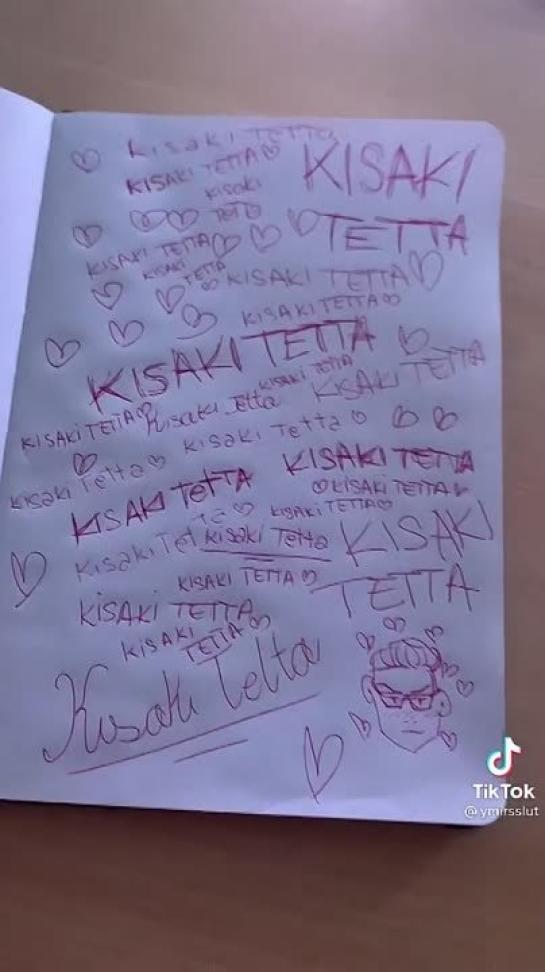 Kisaki TETTA
KISAKI TETTA
KISAKI
TETTA
kisaki
KISAKI TETTA
KISAKI
TETTA
KISAKI TETTA
KISAKI TETTA
KISAKI TETTA
KISAKI TETTA
KISAKI TETTA
KISAKI TETTA
Kisaki Tetta
KISAKI TETTA
Kisaki Tetta
Kisaki Tetta
KISAKI TETTA
KISAKI TETTA
KISAKI TETTA
KISAKI TETTA
Kisaki Tet
kisaki Tetta
KISAKI
TETTA
KISAKI TETTA
KISAKI TETTA
KISAKI
TETTA
Kisaki Tetta
TikTok
@ymirsslut